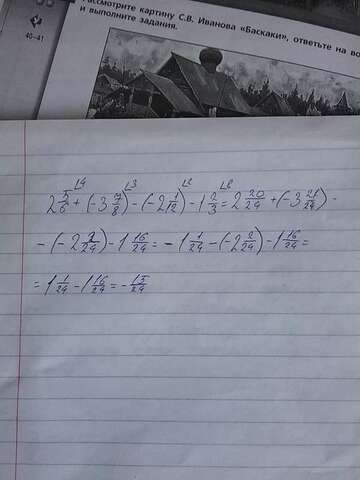 Рассмотрите картину С.В. Иванова «Баскаки», ответьте на во
и выполните задания.
40–41
2 5/6 + (-3 7/8) - (-2 1/12) - 1 2/3 = 2 20/24 + (-3 21/24) -
- (-2 2/24) - 1 16/24 = - 1 1/24 - (-2 2/24) - 1 16/24 =
= 1 1/24 - 1 16/24 = - 15/24